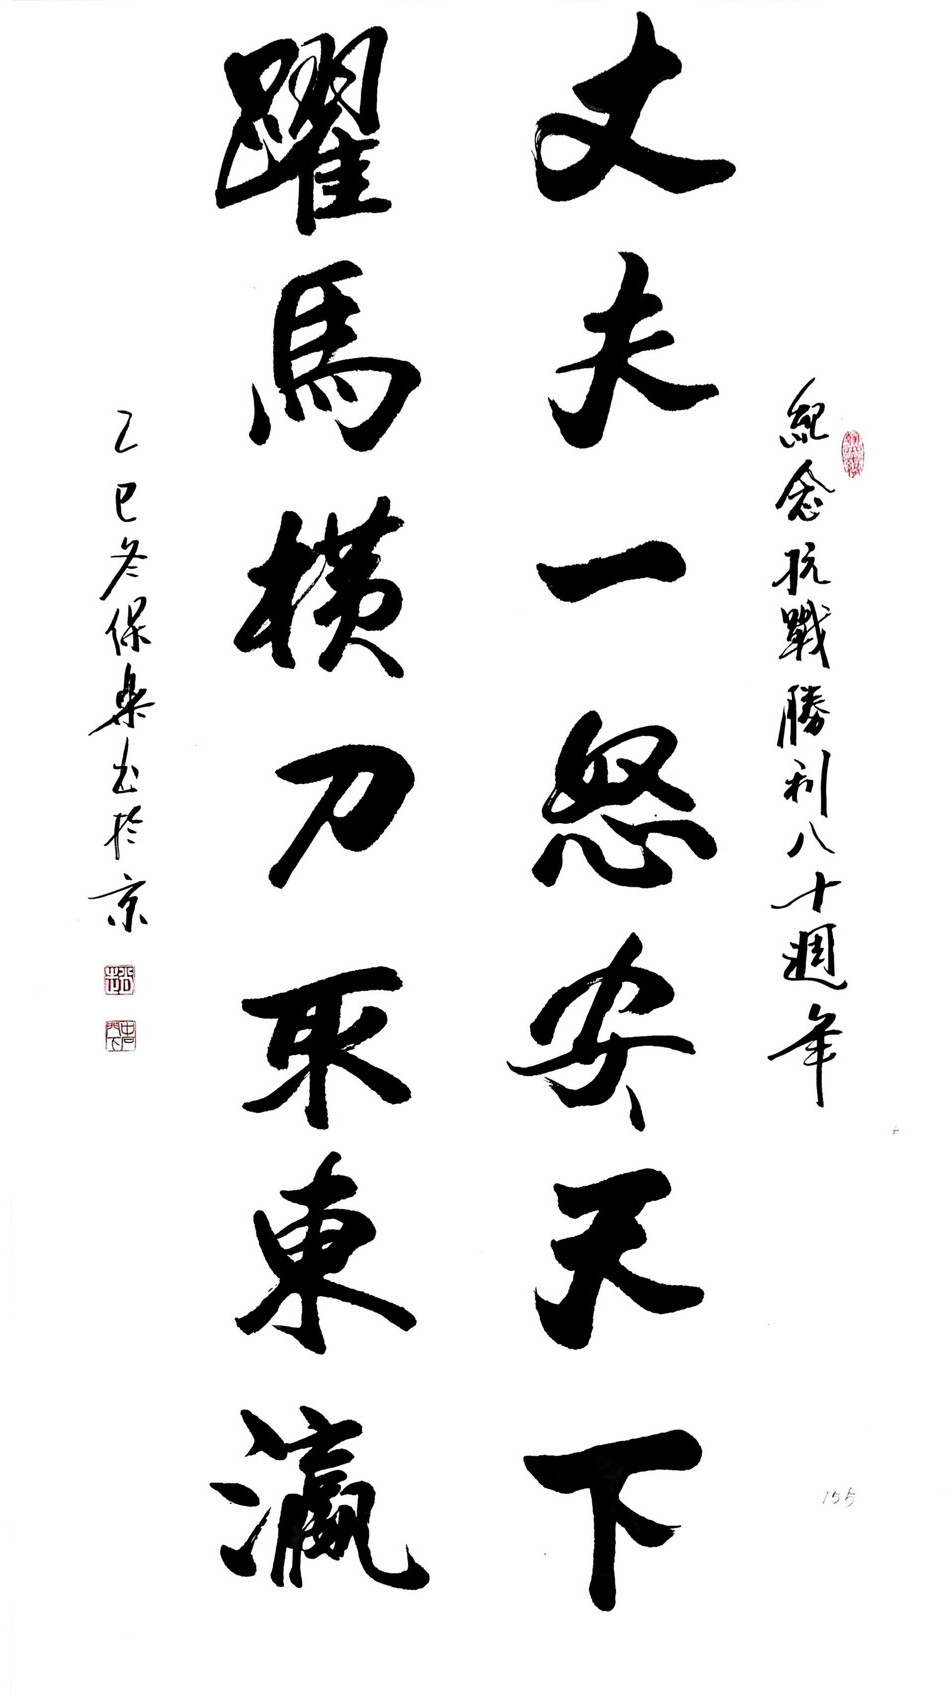 紀念抗戰勝利八十週年
丈夫一怒安天下
躍馬橫刀取東瀛
乙巳冬保樂书於京
155